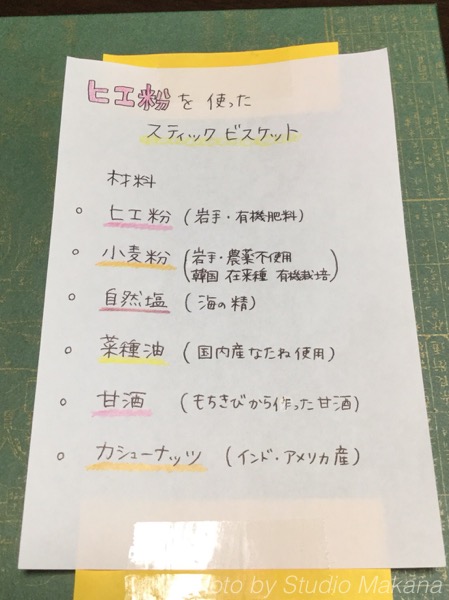 ヒエ粉を使った
スティックビスケット
材料
○ ヒエ粉 (岩手・有機肥料)
○ 小麦粉 (岩手・農薬不使用
韓国 在来種 有機栽培)
○ 自然塩 (海の精)
○ 菜種油 (国内産なたね使用)
○ 甘酒 (もちきびから作った甘酒)
○ カシューナッツ (インド・アメリカ産)
Photo by Studio Makana